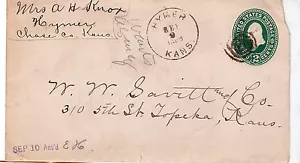 Mrs A H Knox
Hymer
Chase Co. Kans.
HYMER
KANS
UNITED STATES POSTAGE
W. W. Gavitt and Co.
310 5th St. Topeka, Kans.
SEP 10 Ans'd